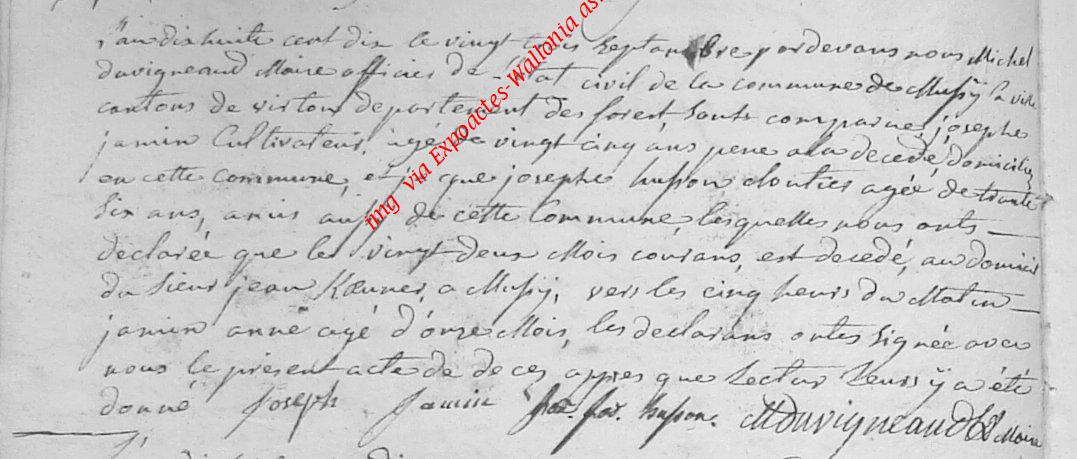 L'an dix huite cent dix le vingt trois Septambre pardevans nous Michel
duvigneaud Maire officier de L'Etat civil de la commune de Mussÿ la ville
cantons de virton departement des forest, Sonts comparue, josephe
jamin Cultivateur, agée de vingt cinq ans pere a la decedé, domiciliez
en cette commune, et que josephe husson cloutier agée de trante
Six ans, amis aussy de cette Commune, lesquelles nous onts
declarée que le vingt deux Mois courans, est decedé, au domicil
du Sieur jean Kœuner, a Mussÿ, vers les cinq heurs du Matin
jamin anne agé d'onze Mois, les declarans onts Signée avec
nous le présent acte de deces appres que Lectur Leurs ÿ a été
donné Joseph Jamin husson. MDuvigneaud Maire
img via Expoactes-Wallonia as